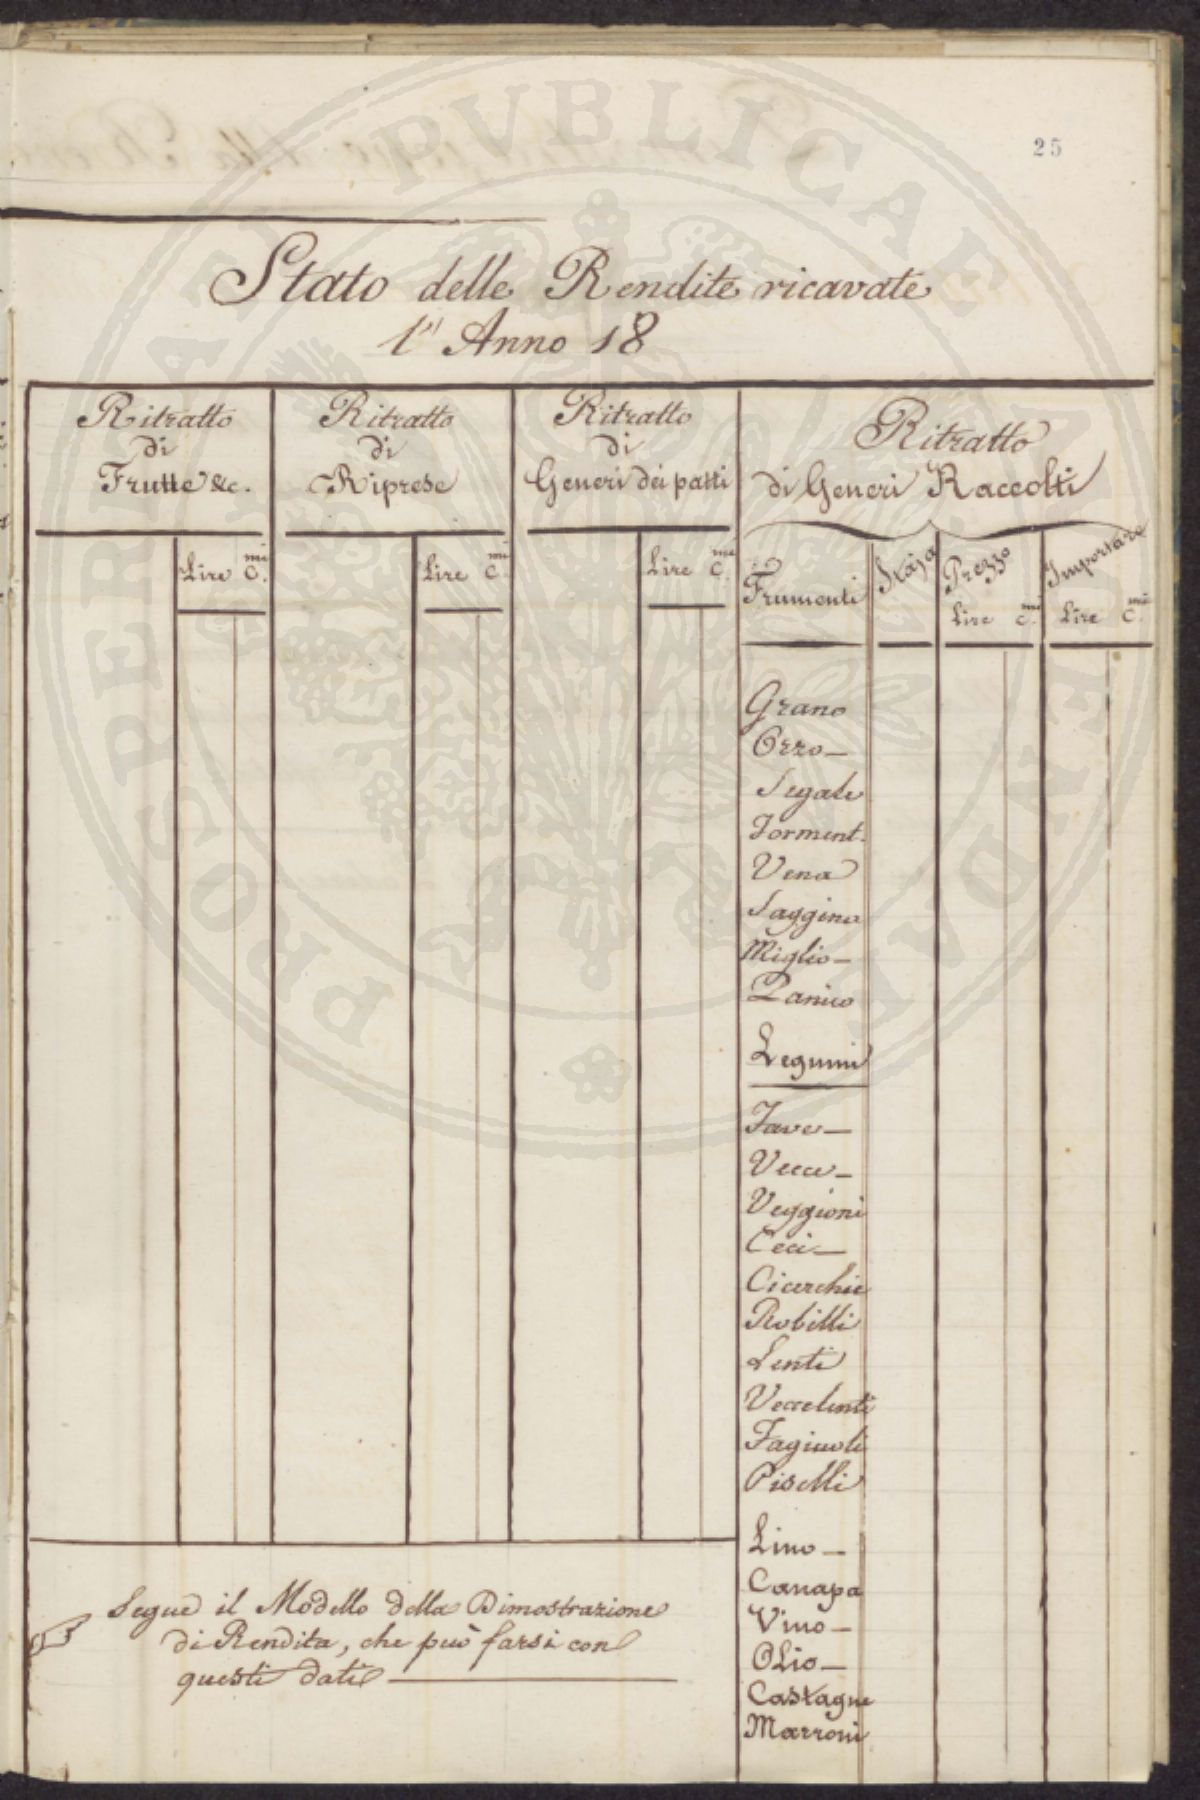 PROSPERITATI PVBLICAE AVGENDAE
25
Stato delle Rendite ricavate
l'Anno 18
Ritratto
di
Frutte &c.
Lire C.mi
Ritratto
di
Riprese
Lire C.mi
Ritratto
di
Generi dei patti
Lire C.mi
Ritratto
di Generi Raccolti
Frumenti
Staja
Prezzo
Lire C.mi
Importare
Lire C.mi
Grano
Orzo —
Segale
Forment.
Vena
Saggina
Miglio —
Panico
Legumi
Fave —
Vecce —
Veggioni
Ceci —
Cicerchie
Robilli
Lenti
Veccelenti
Fagiuoli
Piselli
Lino —
Canapa
Vino —
Olio —
Castagne
Marroni
Segue il Modello della Dimostrazione
di Rendita, che può farsi con
questi dati —